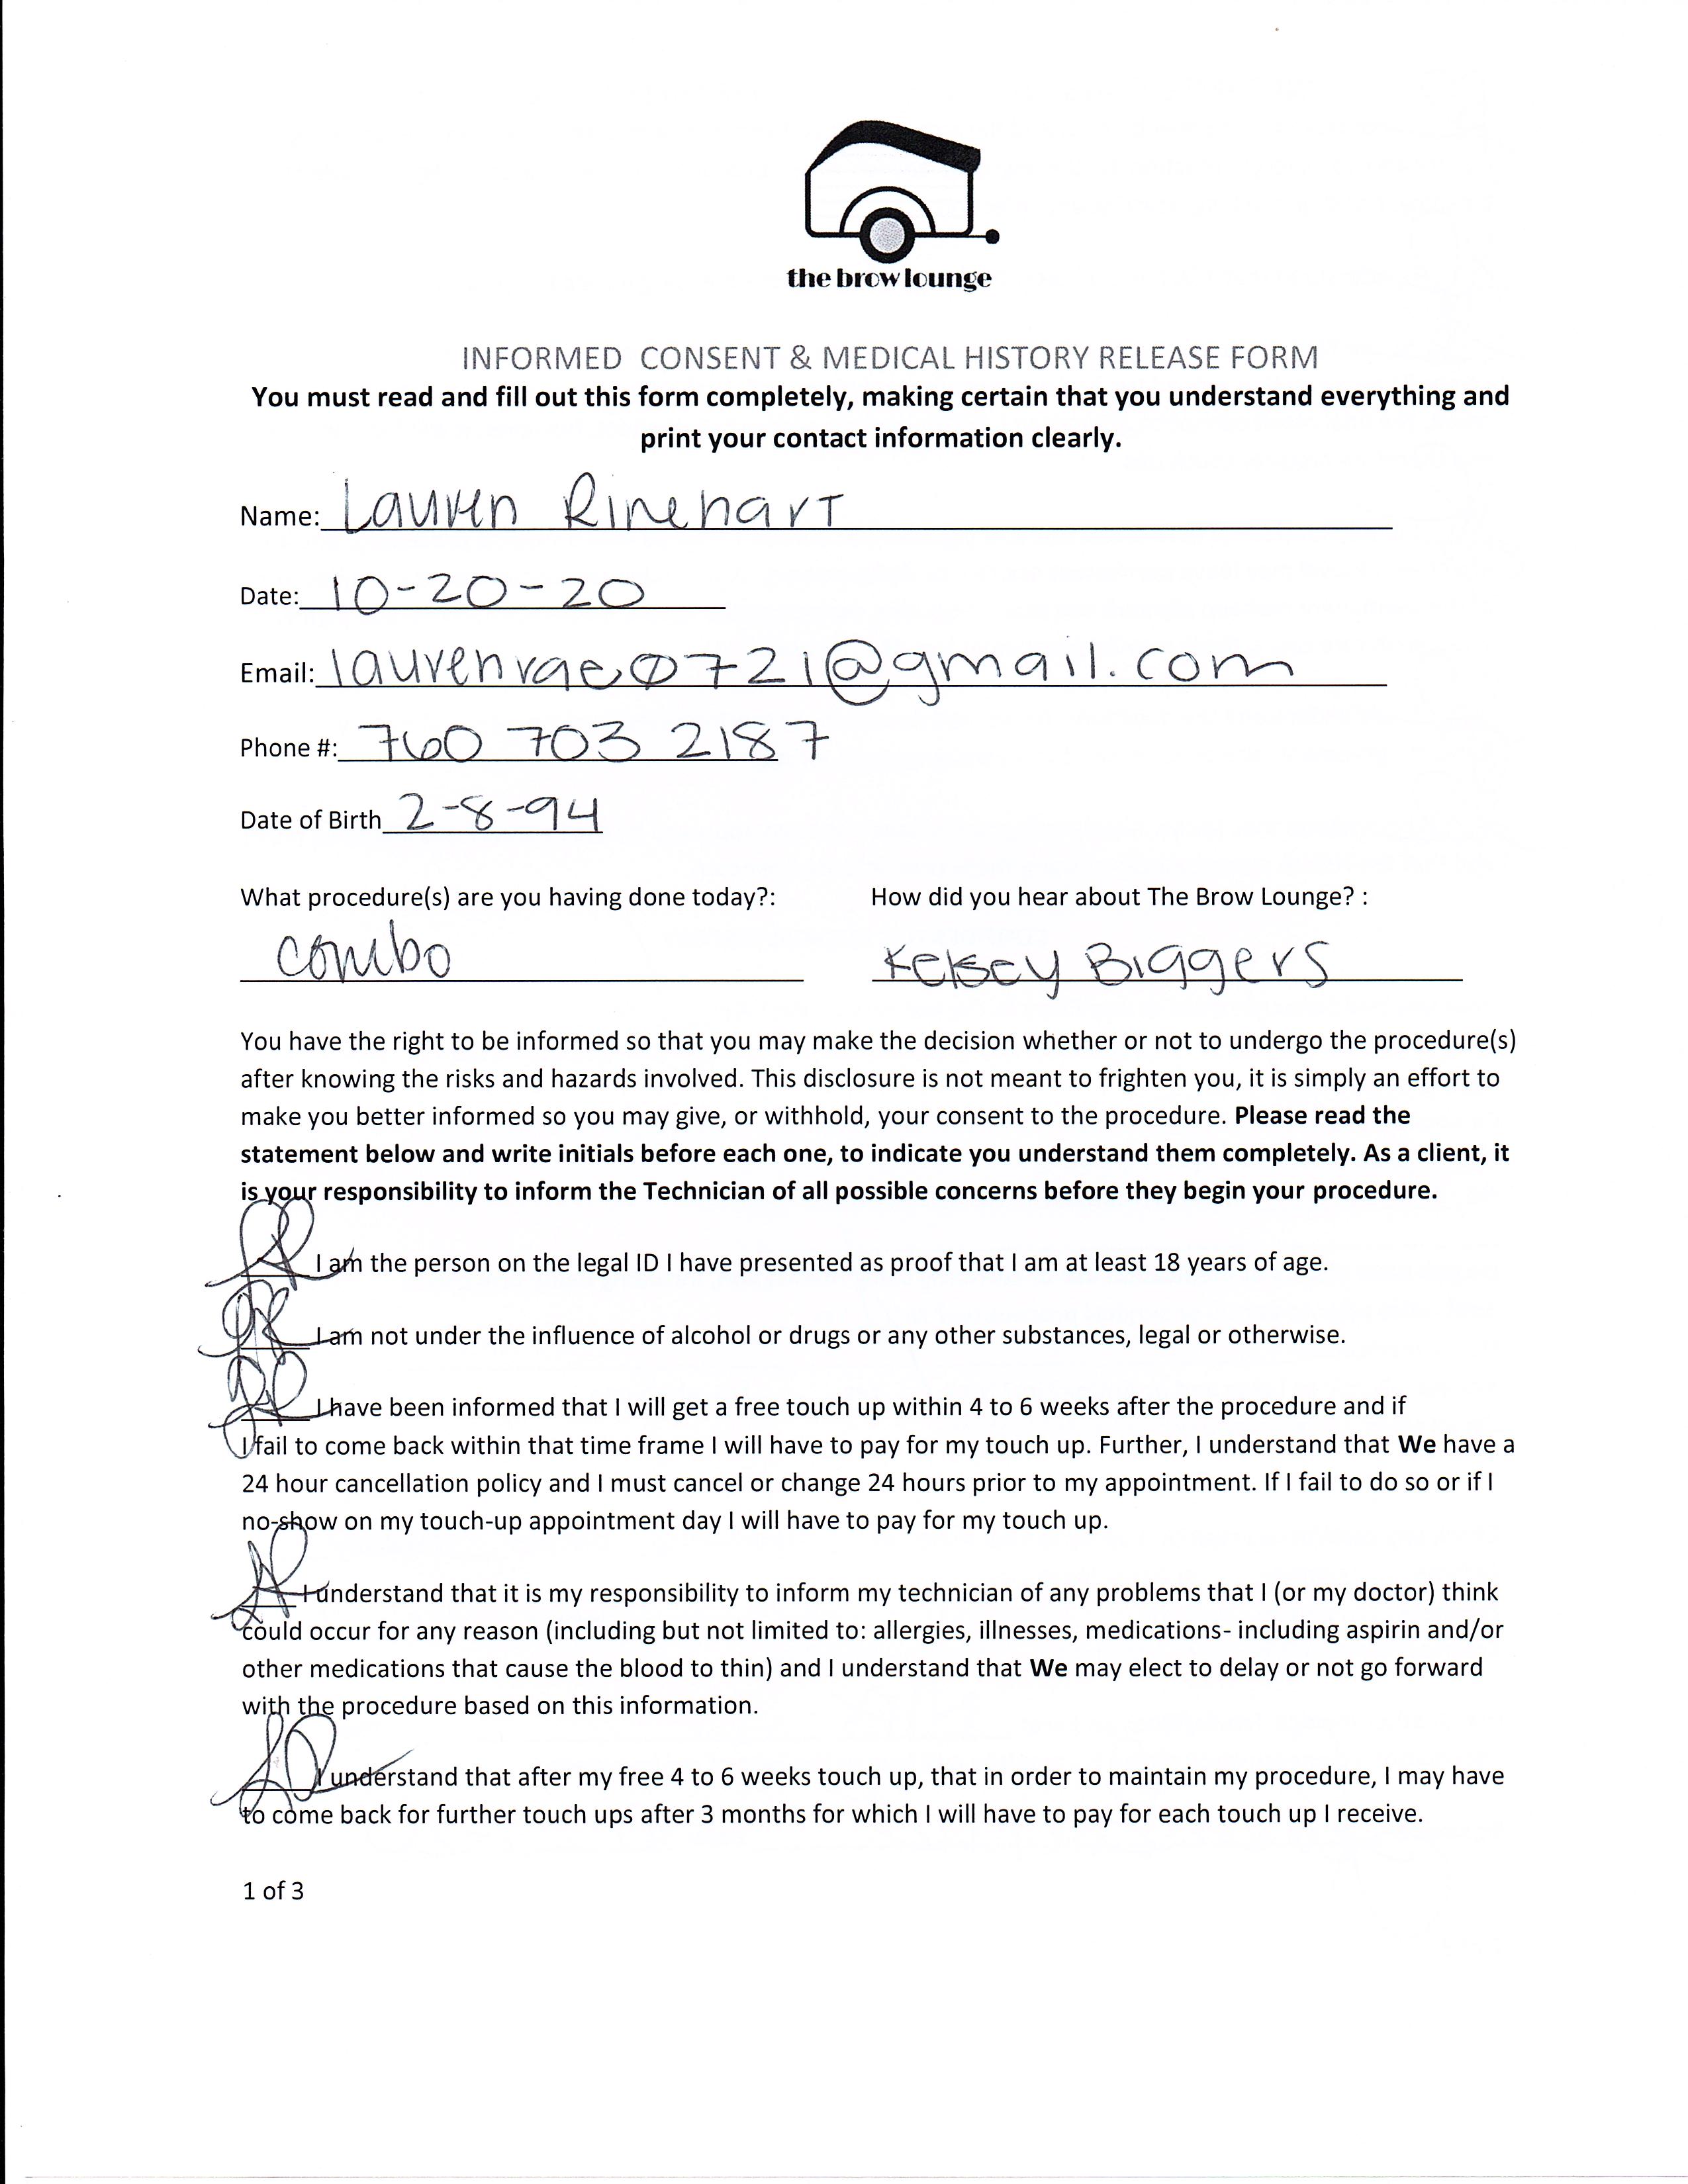 the brow lounge
INFORMED CONSENT & MEDICAL HISTORY RELEASE FORM
You must read and fill out this form completely, making certain that you understand everything and
print your contact information clearly.
Name: Lauren Rinehart
Date: 10-20-20
Email: laurenrae0721@gmail.com
Phone #: 760 703 2187
Date of Birth 2-8-94
What procedure(s) are you having done today?: How did you hear about The Brow Lounge? :
combo Kelsey Biggers
You have the right to be informed so that you may make the decision whether or not to undergo the procedure(s)
after knowing the risks and hazards involved. This disclosure is not meant to frighten you, it is simply an effort to
make you better informed so you may give, or withhold, your consent to the procedure. Please read the
statement below and write initials before each one, to indicate you understand them completely. As a client, it
is your responsibility to inform the Technician of all possible concerns before they begin your procedure.
LR I am the person on the legal ID I have presented as proof that I am at least 18 years of age.
LR I am not under the influence of alcohol or drugs or any other substances, legal or otherwise.
LR I have been informed that I will get a free touch up within 4 to 6 weeks after the procedure and if
I fail to come back within that time frame I will have to pay for my touch up. Further, I understand that We have a
24 hour cancellation policy and I must cancel or change 24 hours prior to my appointment. If I fail to do so or if I
no-show on my touch-up appointment day I will have to pay for my touch up.
LR I understand that it is my responsibility to inform my technician of any problems that I (or my doctor) think
could occur for any reason (including but not limited to: allergies, illnesses, medications- including aspirin and/or
other medications that cause the blood to thin) and I understand that We may elect to delay or not go forward
with the procedure based on this information.
LR I understand that after my free 4 to 6 weeks touch up, that in order to maintain my procedure, I may have
to come back for further touch ups after 3 months for which I will have to pay for each touch up I receive.
1 of 3